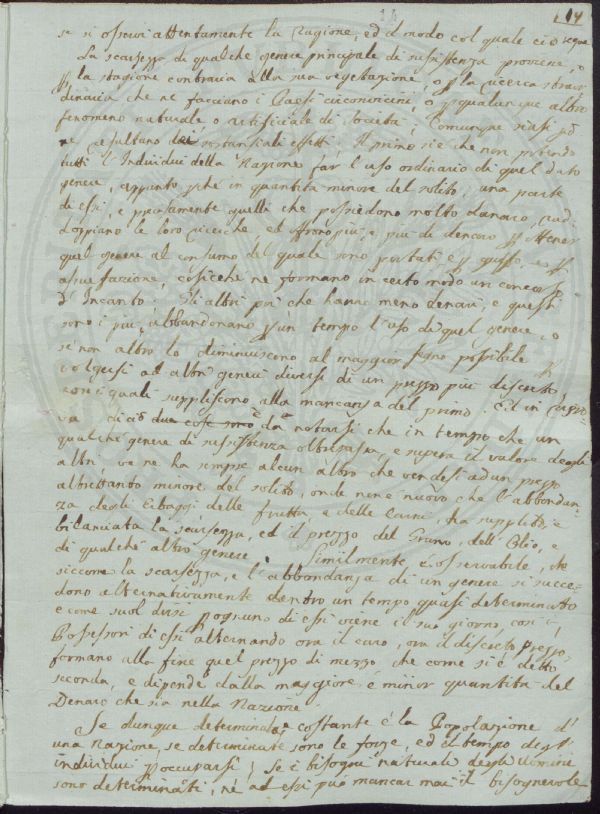 14
se si osservi attentamente la Ragione, ed il modo col quale ciò segue
La scarsezza di qualche genere principale di sussistenza proviene, o
la stagione contraria alla sua vegetazione, o la ricerca straor-
dinaria che ne facciano i Paesi circonvicini, o qualunque altro
fenomeno naturale o artificiale di società; Comunque siasi
ne resultano sostanziali effetti. Il primo si è che non potendo
tutti l'Individui della Nazione far l'uso ordinario di quel dato
genere, appunto perchè in quantità minore del solito, una parte
di essi, e quelli che possiedono molto danaro, rad-
doppiano le loro ricerche ed offrono più, e più di denaro ottener
quel genere al consumo del quale sono portati e gusto, e
assuefazione, cosicchè ne formano in certo modo un
d'Incanto. Gli altri poi che hanno meno denari, e questi
sono i più, abbandonano un tempo l'uso di quel genere, o
se non altro lo diminuiscono al maggior segno possibile
volgersi ad altri generi diversi di un prezzo più discreto,
con i quali suppliscono alla mancanza del primo. Ed in
va di ciò due cose sono da notarsi che in tempo che un
qualche genere di sussistenza oltrepassa, e supera il valore degli
altri, ve ne ha sempre alcun altro che vendesi ad un prezzo
altrettanto minore del solito, onde non è nuovo che l'abbondan-
za degli Erbaggi delle frutta, e delle Carni, ha supplito, e
bilanciata la scarsezza, ed il prezzo del Grano, dell'Olio, e
di qualche altro genere. Similmente è osservabile, che
siccome la scarsezza, e l'abbondanza di un genere si succe-
dono alternativamente dentro un tempo quasi determinato
e come suol dirsi ognuno di essi viene il suo giorno, così i
Possessori di essi alternando ora il caro, ora il discreto prezzo,
formano alla fine quel prezzo di mezzo che come si è detto
seconda, e dipende dalla maggiore, e minor quantità del
Denaro che sia nella Nazione.
Se dunque determinata, e costante è la Popolazione d'
una Nazione, se determinate sono le forze, ed il tempo degl'
individui occuparsi; Se i bisogni naturali degli uomini
sono determinati, nè ad essi può mancar mai il bisognevole